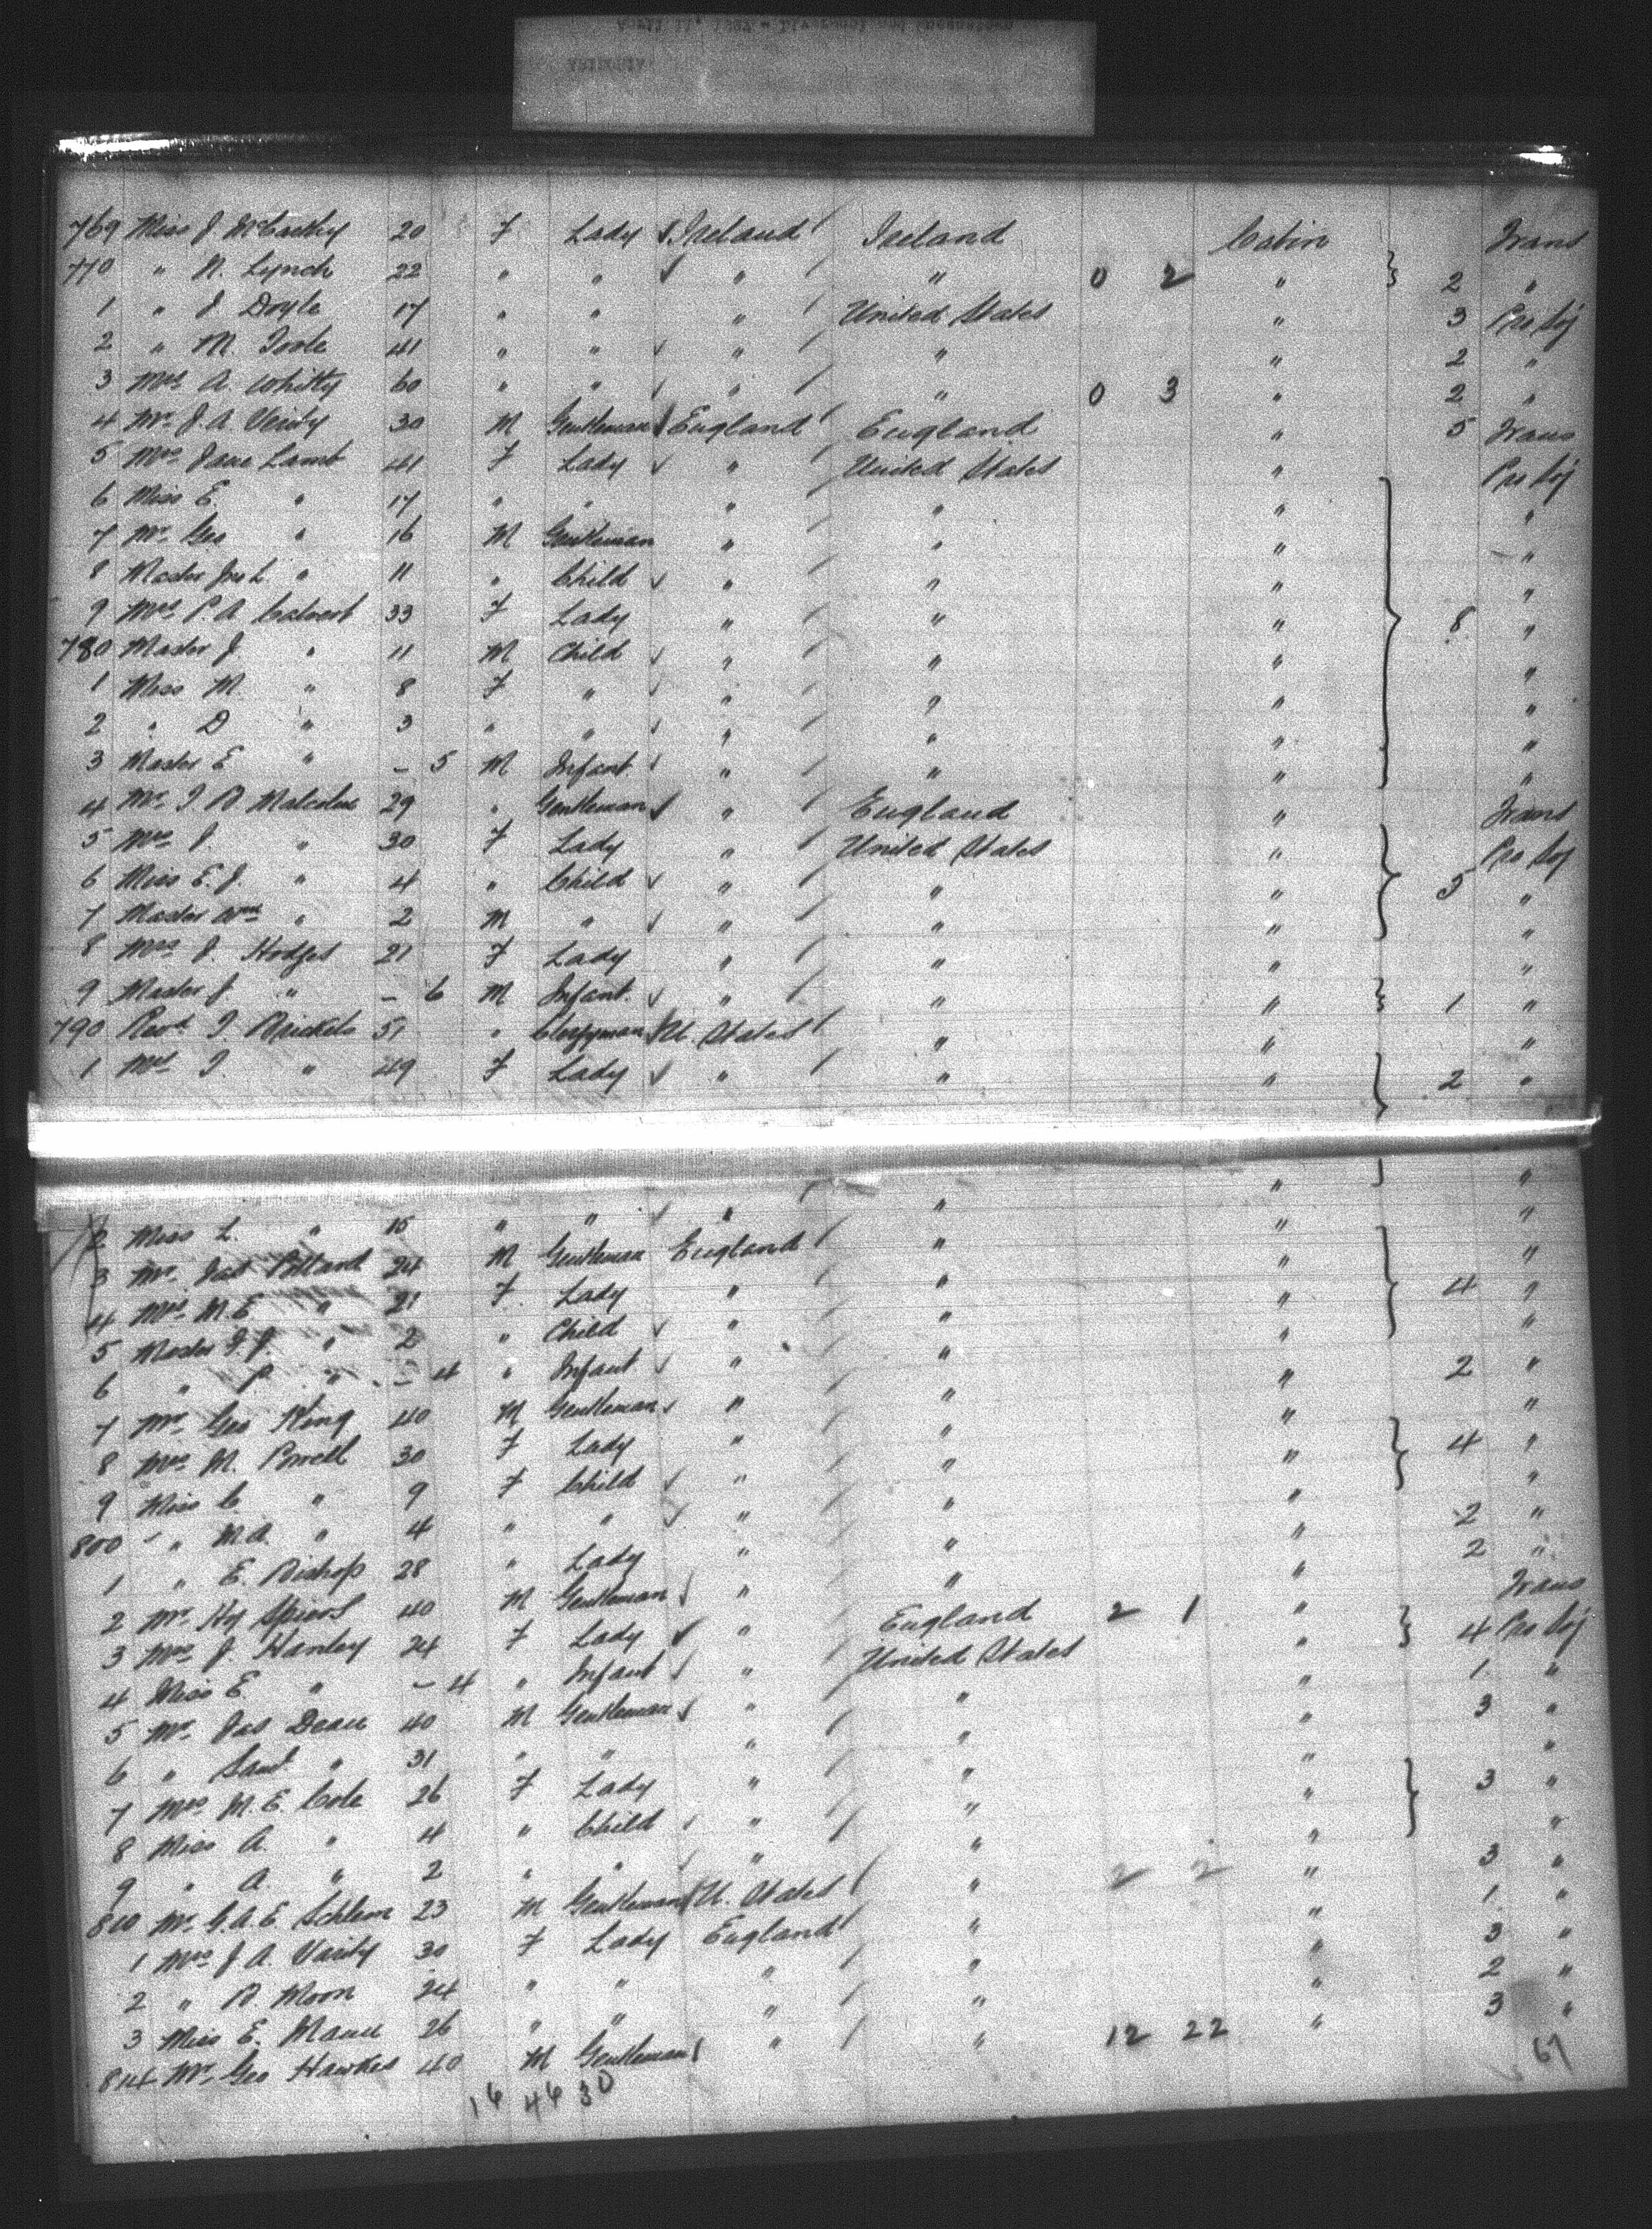 769 Miss J McCarthy 20 F Lady Ireland Ireland Cabin Trans
770 " N. Lynch 22 " " " " 0 2 " 2 "
1 " J Doyle 17 " " " United States " 3 Pro Soj
2 " M. Toole 41 " " " " " 2 "
3 Mrs A. Whitty 60 " " " " 0 3 " 2 "
4 Mr J. A. Verity 30 M Gentleman England England " 5 Trans
5 Mrs Jane Lamb 41 F Lady " United States " Pro Soj
6 Miss E. " 17 " " " " " "
7 Mr Geo " 16 M Gentleman " " " "
8 Master Jno L. " 11 " Child " " " "
9 Mrs P. A. Calvert 33 F Lady " " " 8 "
780 Master J. " 11 M Child " " " "
1 Miss M. " 8 F " " " " "
2 " D " 3 " " " " " "
3 Master E " – 5 M Infant " " " "
4 Mr T. B. Malcolm 29 " Gentleman " England " Trans
5 Mrs J. " 30 F Lady " United States " Pro Soj
6 Miss E. J. " 4 " Child " " " 5 "
7 Master Wm " 2 M " " " " "
8 Mrs J. Hodges 21 F Lady " " " "
9 Master J. " – 6 M Infant. " " " 1 "
790 Revd T. Ricketts 51 " Clergyman U. States " " "
1 Mrs T. " 49 F Lady " " " 2 "
2 Miss L. " 15 " " " " " "
3 Mr Jas Pollard 24 M Gentleman England " " "
4 Mrs M. E. " 21 F Lady " " " 4 "
5 Master G. J. " 2 " Child " " " "
6 " P. " – 4 " Infant " " " 2 "
7 Mr Geo King 40 M Gentleman " " " "
8 Mrs M. Powell 30 F Lady " " " 4 "
9 Miss C. " 9 F Child " " " "
800 " M. A. " 4 " " " " " 2 "
1 " E. Bishop 28 " Lady " " " 2 "
2 Mr Hy Spiers 40 M Gentleman " England 2 1 " Trans
3 Mrs J. Hanley 24 F Lady " United States " 4 Pro Soj
4 Miss E. " – 4 " Infant " " " 1 "
5 Mr Jas Deane 40 M Gentleman " " " 3 "
6 " Saml " 31 " " " " " "
7 Mrs M. E. Cole 26 F Lady " " " 3 "
8 Miss A. " 4 " Child " " " "
9 " A. " 2 " " " " 2 2 " 3 "
810 Mr G. A. E. Schlem 23 M Gentleman U. States " " 1 "
1 Mrs J. A. Verity 30 F Lady England " " 3 "
2 " B. Moon 24 " " " " " 2 "
3 Miss E. Mann 26 " " " " 12 22 " 3 "
814 Mr Geo Hawkes 40 M Gentleman
16 46 30
67